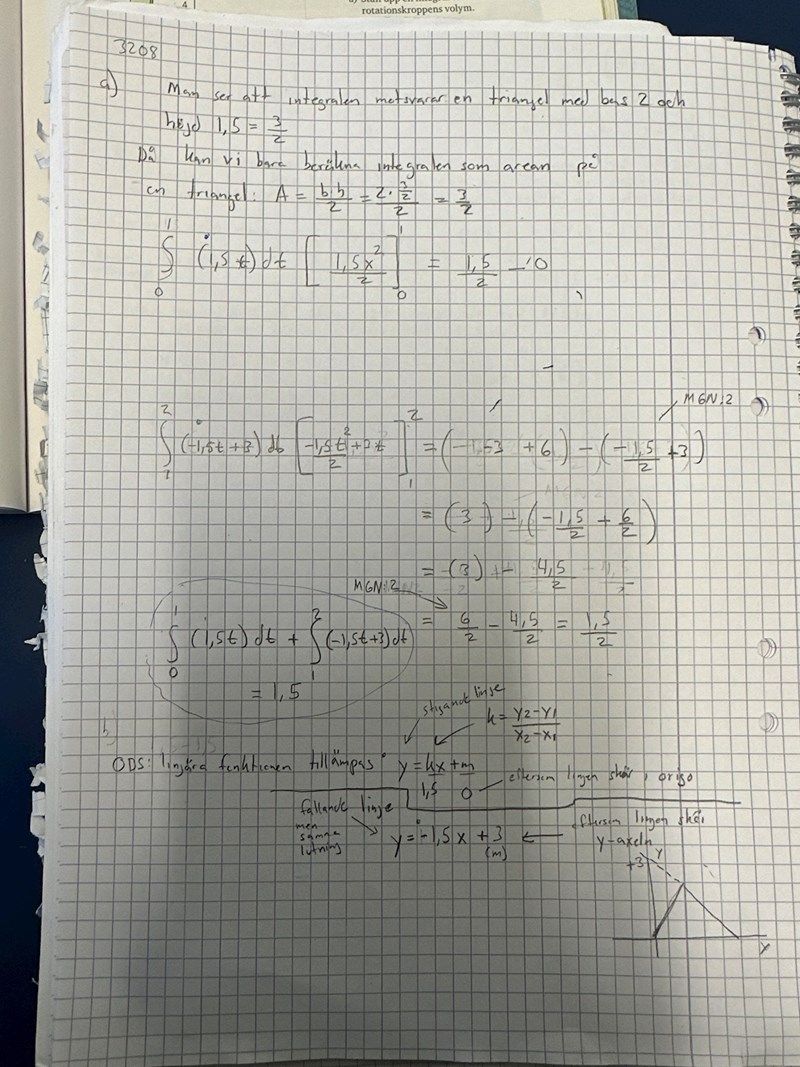 rotationskroppens volym.
4
3208
a) Man ser att integralen motsvarar en triangel med bas 2 och
höjd 1,5 = 3/2
Då kan vi bara beräkna integralen som arean på
en triangel: A = b·h/2 = 2·3/2/2 = 3/2
∫₀¹ (1,5t)dt [1,5x²/2]₀¹ = 1,5/2 - 0
MGN:2
∫₁² (-1,5t+3)dt [-1,5t²/2+3t]₁² = (-1,53 +6) - (-1,5/2 +3)
= (3) - (-1,5/2 + 6/2)
= (3) - 4,5/2
MGN:2
∫₀¹ (1,5t)dt + ∫₁² (-1,5t+3)dt = 6/2 - 4,5/2 = 1,5/2
= 1,5
stigande linje
k = y₂-y₁/x₂-x₁
b)
OBS: linjära funktionen tillämpas y = kx+m
1,5 0 eftersom linjen skär i origo
fallande linje
men
samma
lutning
y = -1,5x + 3
(m)
eftersom linjen skär
y-axeln
+3 y
y